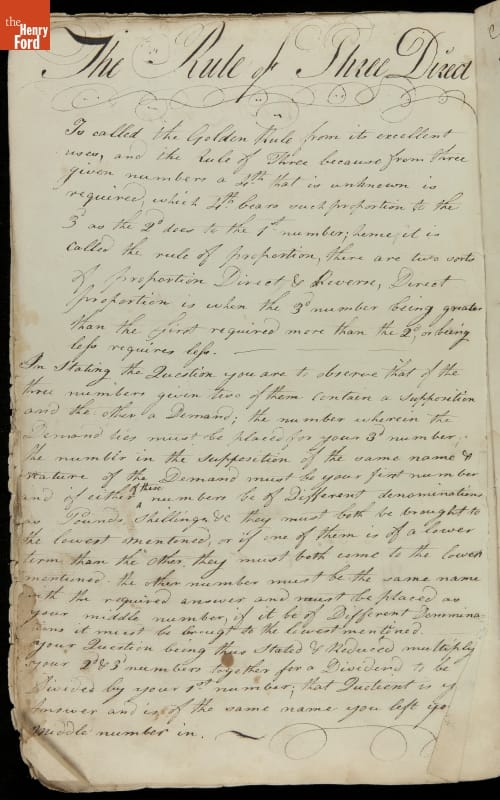 the
Henry
Ford
The Rule of Three Direct
Is called the Golden Rule from its excellent
uses, and the Rule of Three because from three
given numbers a 4th that is unknown is
required, which 4th bears such proportion to the
3d as the 2d does to the 1st number; hence, it is
called the rule of proportion, there are two sorts
of proportion Direct & Reverse, Direct
proportion is when the 3d number being greater
than the first required more than the 2d, or being
less requires less.
In Stating the Question you are to observe that of the
three numbers given two of them contain a Supposition
and the other a Demand; the number wherein the
Demand lies must be placed for your 3d number,
the number in the Supposition of the same name &
nature of the Demand must be your first number
and if either of their numbers be of Different denominations
as Pounds Shillings &c they must both be brought to
the lowest mentioned, or if one of them is of a lower
term than the other, they must both come to the lowest
mentioned the other number must be the same name
with the required answer and must be placed as
your middle number, if it be of Different Denomina
tions it must be brought to the lowest mentioned.
your Question being thus Stated & Reduced multiply
your 2d & 3d numbers together for a Dividend to be
Divided by your 1st number; that Quotient is
Answer and is of the same name you left
middle number in.